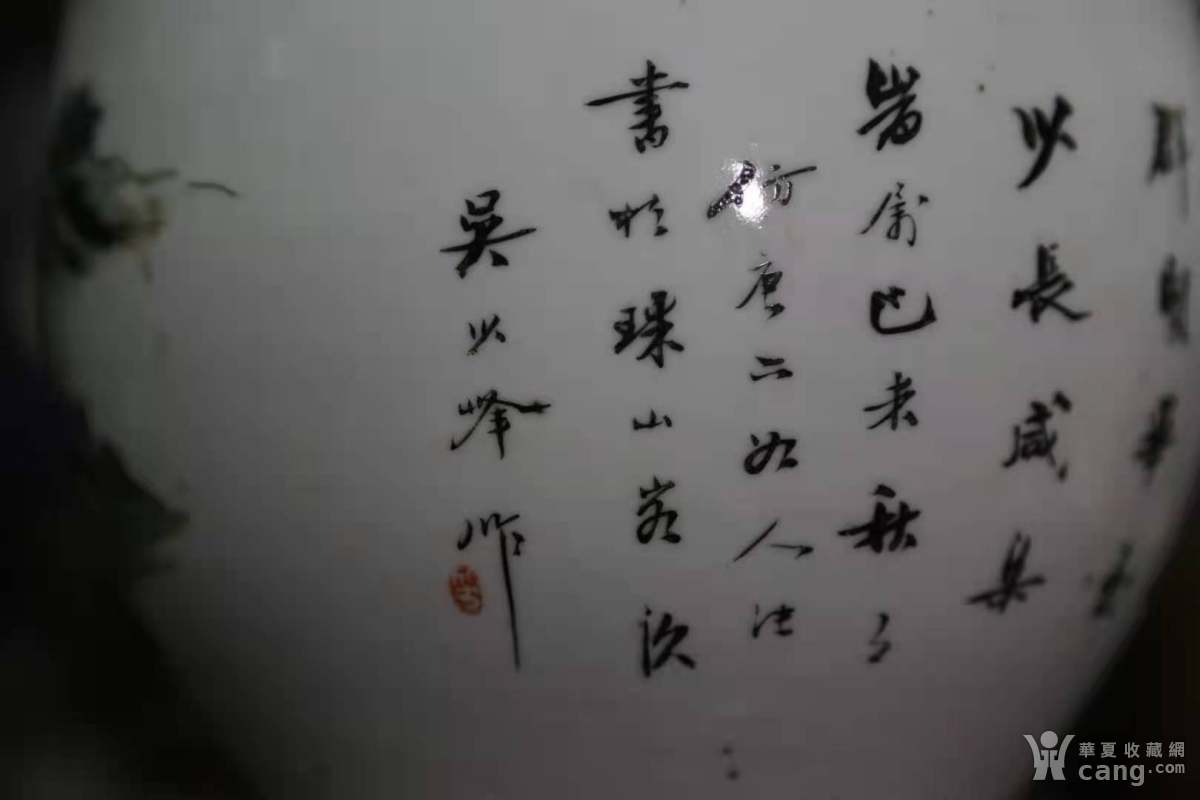 群賢畢至
少長咸集
旹屬己未秋月
仿唐六如人法
書於珠山客次
吳少峰作
華夏收藏網
cang.com